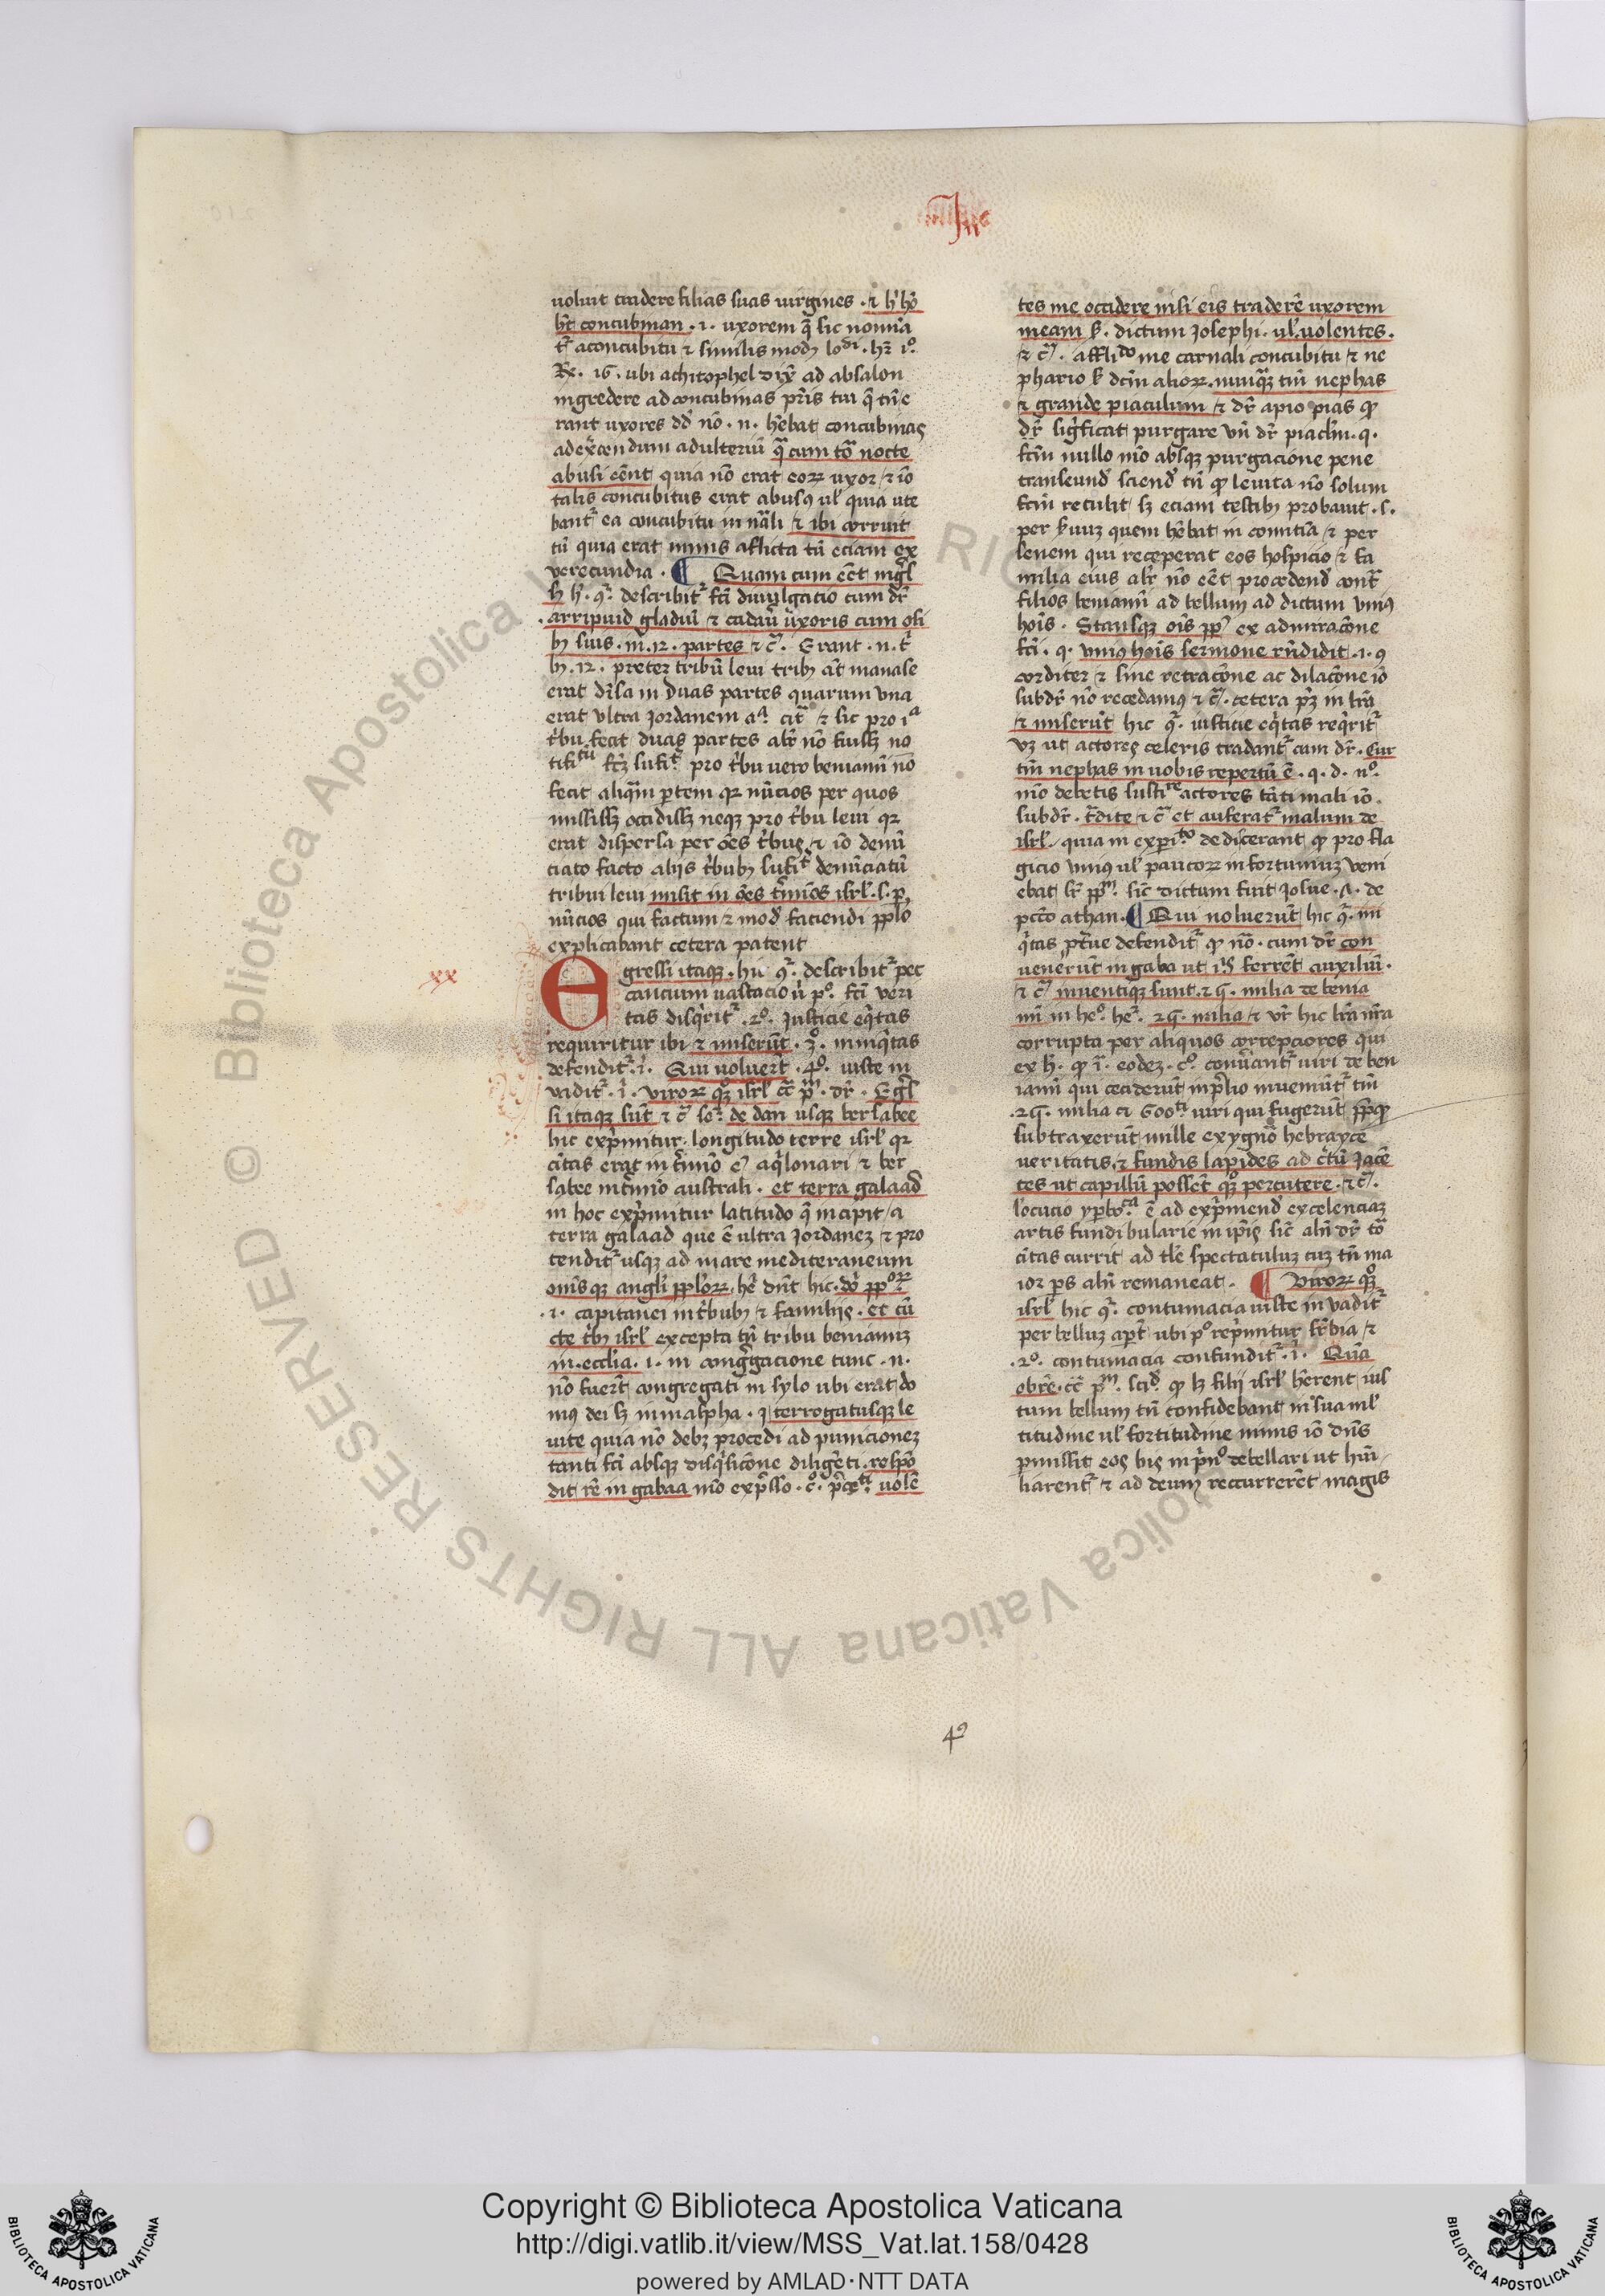 uoluit tradere filias suas uirgines · ⁊ h' hō
hr̄e concubinam · i · uxorem q̄ sic nomīa
t᷑ aconcubitu ⁊ similis modꝰ lo^di · hr̄ i°
Rꝫ · 16 · ubi achitophel dix̄ ad absalon
ingredere ad concubinas pr̄is tui q̄ tn̄ e
rant uxores dd̄ nō · n · hēbat concubinas
ad ex̄cendum adulteriū q̄ cum tōa nocte
abusi eēnt quia nō erat eoꝝ uxor ⁊ iō
talis concubitus erat abusꝰ ul' quia ute
bant᷑ ea concubitu innāli ⁊ ibi corruit
tū quia erat nimis aflicta tū eciam ex
verecundia · ¶ Quam cum eēt īngr̄s
hͥ · q᷑ · describit᷑ fc̄i diuulgatio cum dr̄
arripuid gladiū ⁊ cadauͥ uxoris cum ossi
bꝫ suis · in · 12 · partes ⁊ c̄ · Erant · n · t'
bꝫ · 12 · preter tribū leui tribꝫ aūt manase
erat dīsa in duas partes quarum vna
erat vltra Jordanem a^a cit᷑ ⁊ sic pro i^a
t'bu fecit duas partes alr̄ nō fuisꝫ no
pro t'bu uero beniamī nō
fecit aliqᵃm ꝑtem qꝛ nūcios per quos
missisꝫ occidisꝫ neqꝫ pro t'bu leui qꝛ
erat dispersa per oēs t'bus ⁊ iō denū
ciato facto aliis t'bubꝫ sufi^t denūciatū
tribui leui misit in oēs t'mīos isrl' · s · ꝑ
nūcios qui factum ⁊ modꝰ faciendi pplō
explicabant cetera patent
xx
Egressi itaqꝫ · hic q᷑ · describit᷑ pec
cancium uastacio ⁊ p° · fc̄i veri
tas disq̄rit᷑ · 2° · Justicie eq̄tas
requiritur ibi ⁊ miserūt · 3° · iniq̄tas
defendit᷑ · ī · Qui noluert̄ · 4° · iuste in
uadit᷑ · ī · viroꝝ qꝫ isrl' c̄c̄ pm̄ · dr̄ · Egr̄s
si itaqꝫ sūt ⁊ c̄ · de dan usqꝫ bersabee
hic expᷤmitur longitudo terre isrl' qꝛ
cīitas erat in t'mīo aq'lonari ⁊ ber
sabee in t'mīo australi · et terra galaad
in hoc expᷤmitur latitudo q̄ incipit a
terra galaad que ē ultra Jordanez ⁊ pro
tendit᷑ usqꝫ ad mare mediteraneum
omīsqꝫ angli pplōꝝ hēt dn̄t hic
· i · capitanei in t'bubꝫ ⁊ familiis · et cū
cte t'bꝫ isrl' excepta tn̄ tribu beniamiz
in · ecclīa · i · in congᷓgacione tunc · n ·
nō fuert̄ congregati in sylo ubi erat do
mꝰ dei sꝫ in maspha · Iterrogatusqꝫ le
uite quia nō debꝫ procedi ad punicionez
tanti fc̄i absqꝫ disq̄sicōne diligēti · respō
dit rē in gabaa mō expᷤsso · c° · volē
tes me occidere nisi eis traderē uxorem
meam · dictum Josephi · ul' uolentes ·
⁊ c̄ · afflic̄do me carnali concubitu ⁊ ne
phario dc̄m alioꝝ · nūquaꝫ tm̄ nephas
⁊ grande piaculum ⁊ dr̄ apio pias ꝙ
dr̄ sigᷤficat purgare vn̄ dr̄ piacl'm · q ·
fc̄m nullo mō absqꝫ purgacione pene
transeundꝰ sciendꝰ tn̄ ꝙ leuita nō solum
fc̄m retulit sꝫ eciam testibꝫ probauit · s ·
per suuꝫ quem hēbat in comitīa ⁊ per
senem qui receperat eos hospicio ⁊ fa
milia eius alr̄ nō eēt procedendꝰ cont᷑
filios beniamī ad bellum ad dictum vniꝰ
hoīs · Stansqꝫ oīs pp̄ ex admiracōne
fc̄i · q · vniꝰ hoīs sermone rn̄didit · i · ꝯ
corditer ⁊ sine retracōne ac dilacōne iō
subdr̄ nō recedamꝰ ⁊ c̄ · cetera pꝫ in lr̄a
⁊ miserūt hic q᷑ · iusticie eq̄tas req̄rit᷑
vꝫ ut actores celeris tradant᷑ cum dr̄ · Cur
tm̄ nephas in uobis repertū ē · q · d · n°
mō debetis susti^re actores tāti mali iō
subdr̄ · t᷑dite ⁊ c̄ et auferat᷑ malum de
isrl' quia in exp̄i^to dedicerant ꝙ pro fla
gicio vniꝰ ul' paucoꝝ infortuniuꝫ veni
ebat sr̄ ppm̄ · sic̄ dictum fuit Josue · 7 · de
pc̄cto athan · ¶ Qui noluerūt hic q᷑ · in
q'tas pr̄tīue defendit᷑ ꝙ nō · cum dr̄ con
uenerūt in gaba ut il'is ferrēt auxiliū ·
⁊ c̄ inuentiqꝫ sunt · 25 · milia de benia
mī in he° · he^r · 25 · milia ⁊ vr̄ hic lr̄a nr̄a
corrupta per aliquos correptores qui
ex h° · ꝙ ī · eodeꝫ · c° · conūant᷑ uiri de ben
iamī qui ceciderūt in p̄lio inueniūt᷑ tm̄
· 25 · milia ⁊ 600^ti uiri qui fugerūt
subtraxerūt mille ex ygnō hebrayce
ueritatis ⁊ fundis lapides ad c̄tū Jacē
tes ut capillū possēt qꝫ percutere · ⁊ c̄ ·
locucio ypbo^ca ē ad expᷤmendꝰ excelenciaꝫ
artis fundibularie in ip̄is sic̄ alн̄ dr̄ tō
cīitas currit ad tl'e spectaculuꝫ cuꝫ tn̄ ma
ior ꝑs alн̄ remaneat · ¶ Viroꝝ qꝫ
isrl' hic q᷑ · contumacia iuste inuadit᷑
per belluꝫ apt᷑ ubi p° repᷤmitur suꝑbia ⁊
· 2° · contumacia confundit᷑ · ī · Quā
obrē · c̄c̄ pm̄ · sciꝰ ꝙ lꝫ filii isrl' hērent ius
tum bellum tn̄ confidebant in sua ml'
titudine ul' fortitudine nimis iō dn̄s
ꝑmissit eos bis in pᷤn° debellari ut humī
liarent᷑ ⁊ ad deum reccurrerēt magis
49
© Biblioteca Apostolica Vaticana ALL RIGHTS RESERVED
Copyright © Biblioteca Apostolica Vaticana
http://digi.vatlib.it/view/MSS_Vat.lat.158/0428
powered by AMLAD·NTT DATA
BIBLIOTECA APOSTOLICA VATICANA
BIBLIOTECA APOSTOLICA VATICANA